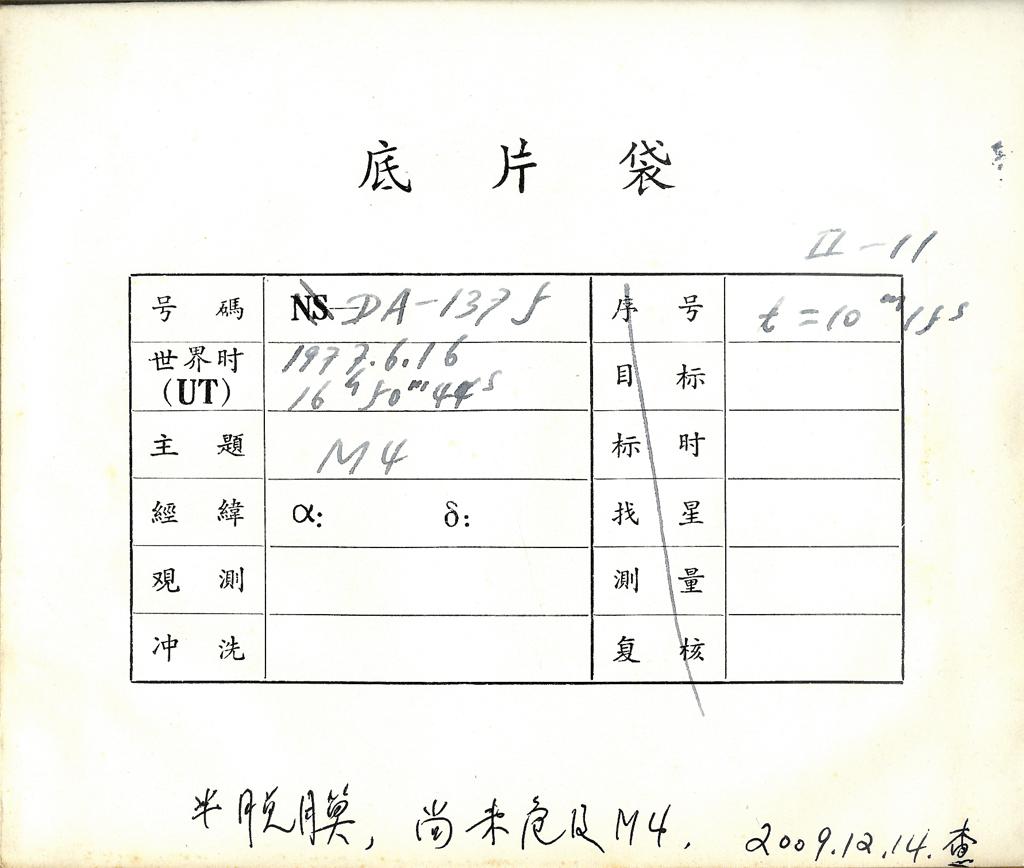 底片袋
II-11
号碼 NS-DA-1375 序号 t=10ᵐ15ˢ
世界时(UT) 1977.6.16 目标
16ʰ50ᵐ44ˢ
主題 M4 标时
經緯 α: δ: 找星
观測 測量
冲洗 复核
半脱膜，尚未危及M4. 2009.12.14.查